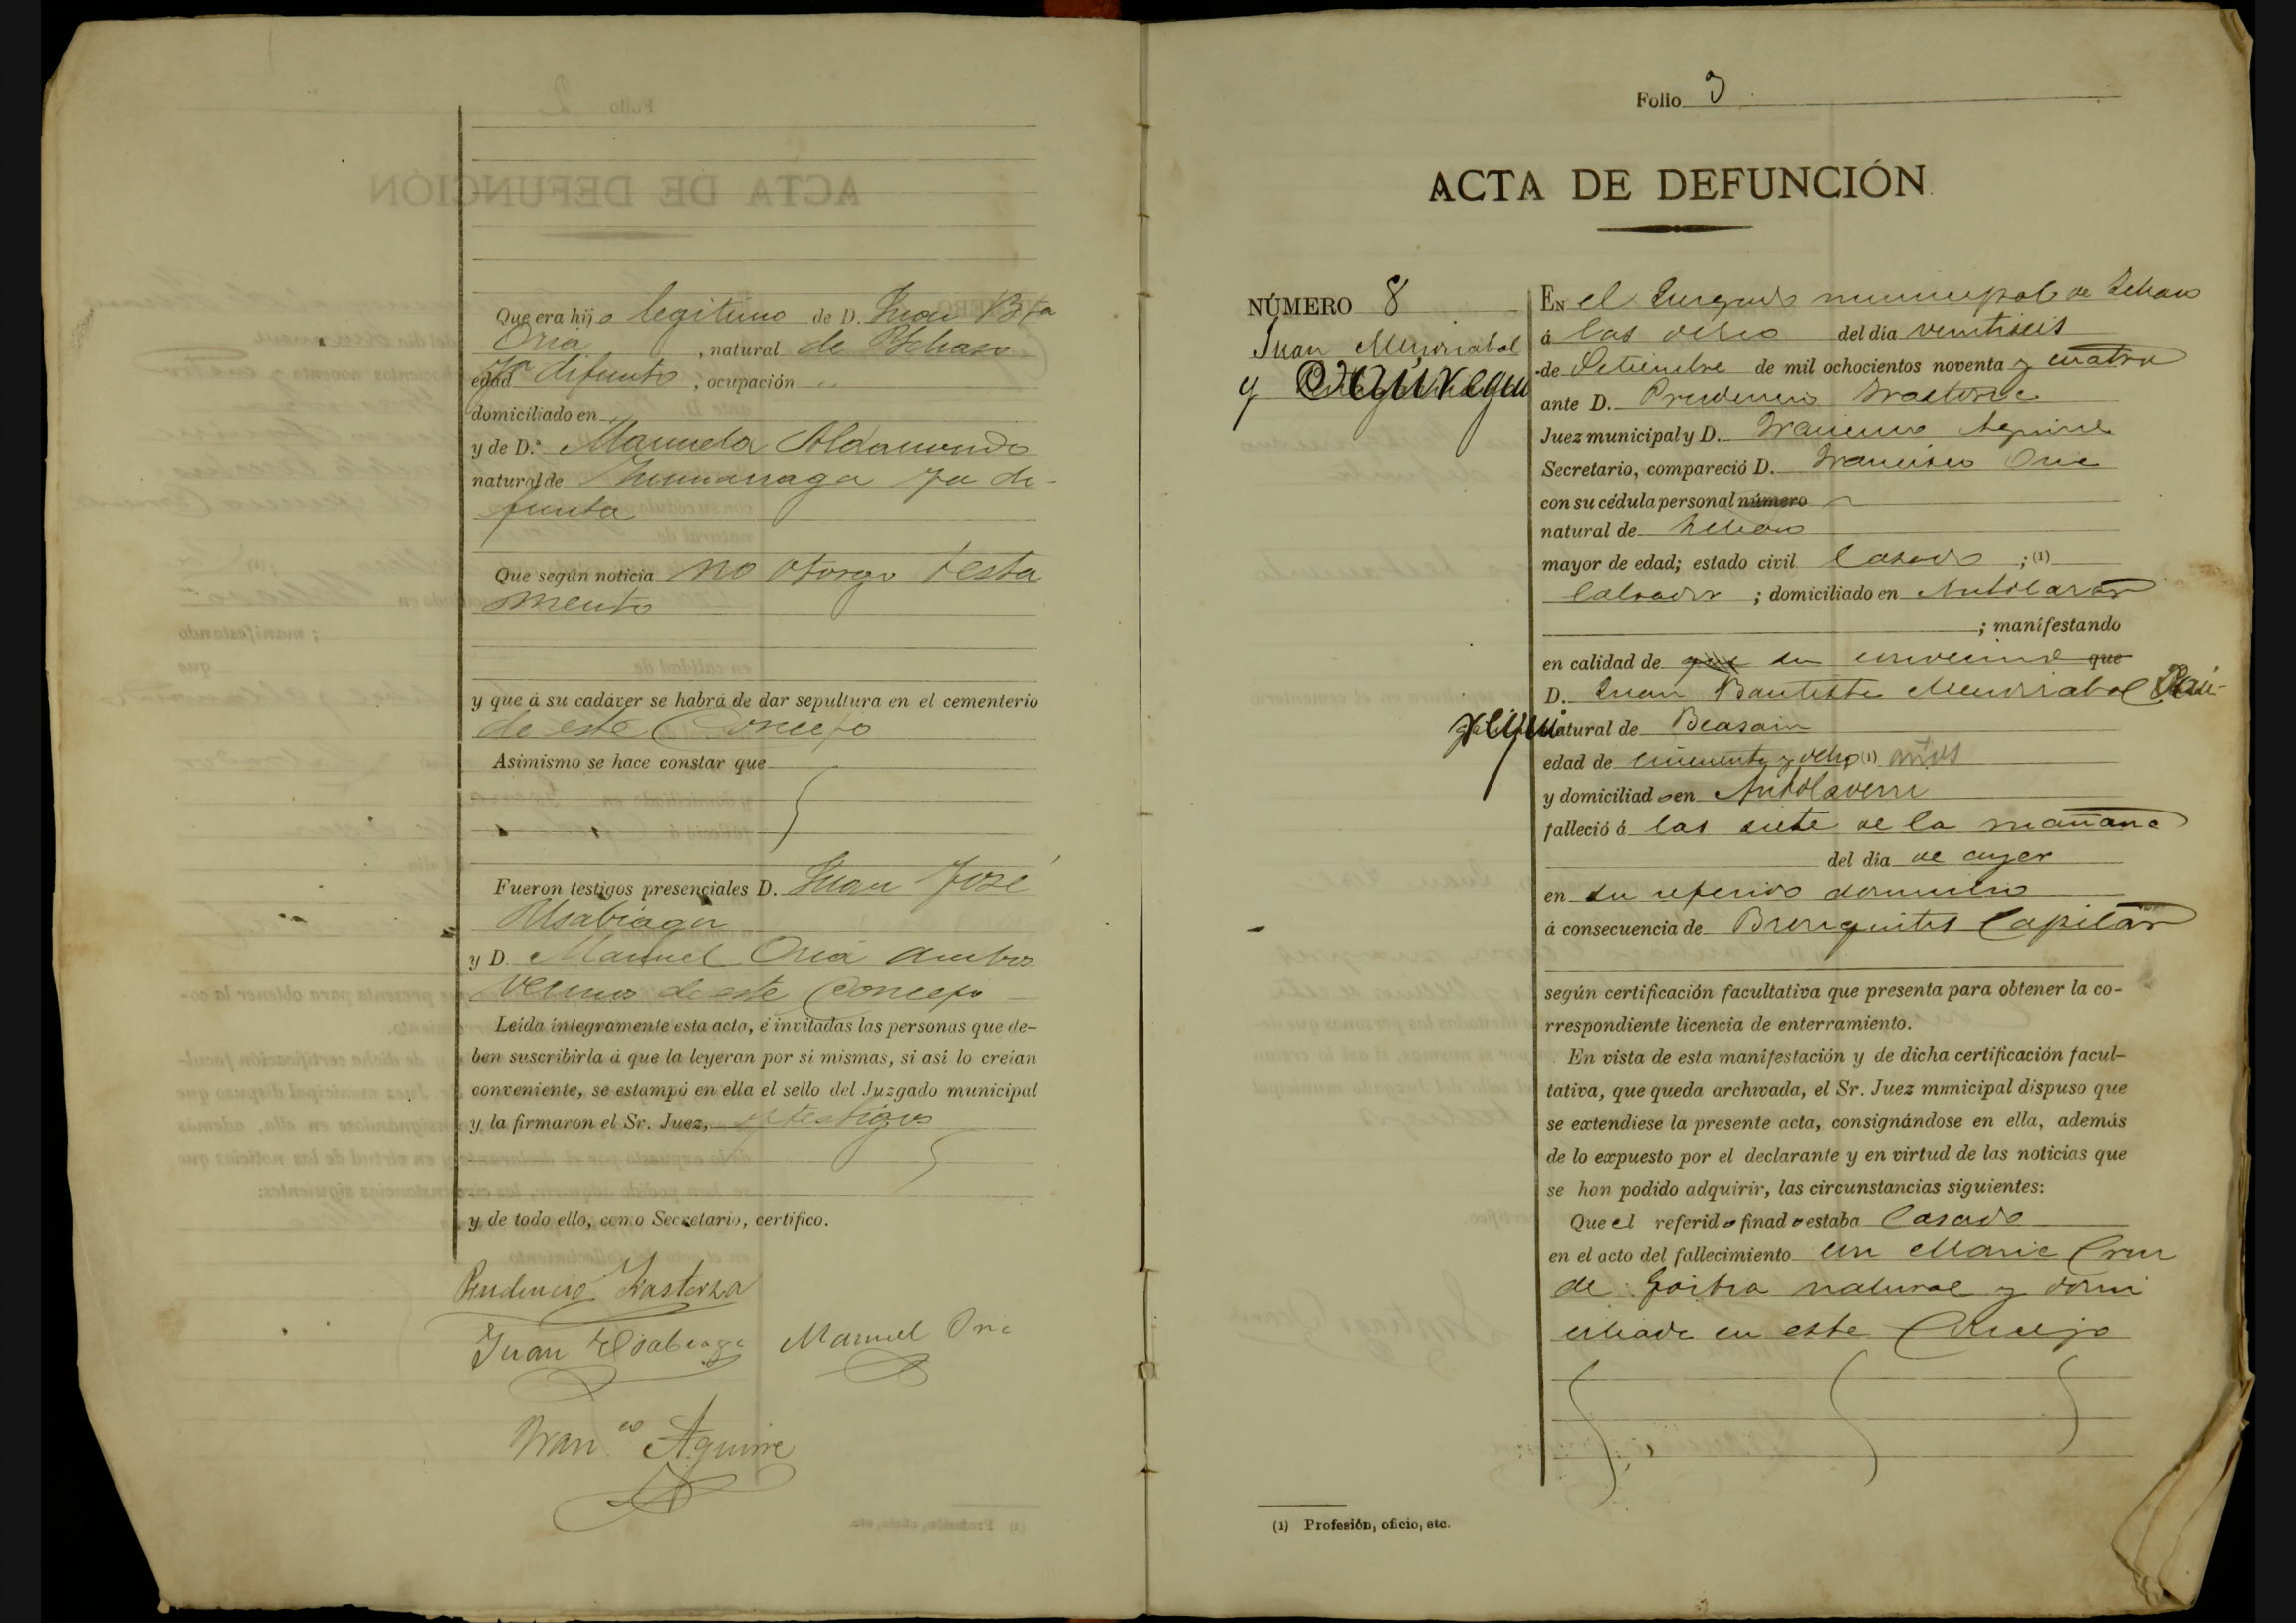 Que era hijo legitimo de D. Juan Bta
Oria, natural de Ychaso
edad ya difunto, ocupación "
domiciliado en
y de D.ª Manuela Aldamondo
natural de Zumarraga ya di-
funta
Que según noticia no otorgo testa
mento
y que á su cadáver se habrá de dar sepultura en el cementerio
de este Concejo
Asimismo se hace constar que
Fueron testigos presenciales D. Juan José
Usabiaga
y D. Manuel Oria ambos
vecinos de este Concejo
Leída íntegramente esta acta, é invitadas las personas que de-
ben suscribirla á que la leyeran por sí mismas, si así lo creían
conveniente, se estampó en ella el sello del Juzgado municipal
y la firmaron el Sr. Juez, y testigos
y de todo ello, como Secretario, certifico.
Prudencio Irastorza
Juan Usabiaga Manuel Oria
Fran.co Aguirre
Folio 3
ACTA DE DEFUNCIÓN
NÚMERO 8
Juan Mendizabal
y
EN el Juzgado municipal de Ichaso
á las ocho del día veintiseis
de Setiembre de mil ochocientos noventa y cuatro
ante D. Prudencio Irastorza
Juez municipal y D. Francisco Aguirre
Secretario, compareció D. Francisco Oria
con su cédula personal número
natural de Ichaso
mayor de edad; estado civil Casado; (1)
Labrador; domiciliado en
; manifestando
en calidad de que su convecino que
D. Juan Bautista Mendizabal
natural de Beasain
edad de cincuenta y ocho (1) años
y domiciliado en
falleció á las siete de la mañana
del día de ayer
en su referido domicilio
á consecuencia de Bronquitis Capilar
según certificación facultativa que presenta para obtener la co-
rrespondiente licencia de enterramiento.
En vista de esta manifestación y de dicha certificación facul-
tativa, que queda archivada, el Sr. Juez municipal dispuso que
se extendiese la presente acta, consignándose en ella, además
de lo expuesto por el declarante y en virtud de las noticias que
se han podido adquirir, las circunstancias siguientes:
Que el referido finado estaba Casado
en el acto del fallecimiento con Maria Cruz
de Goitia natural y domi
ciliada en este Concejo
(1) Profesión, oficio, etc.